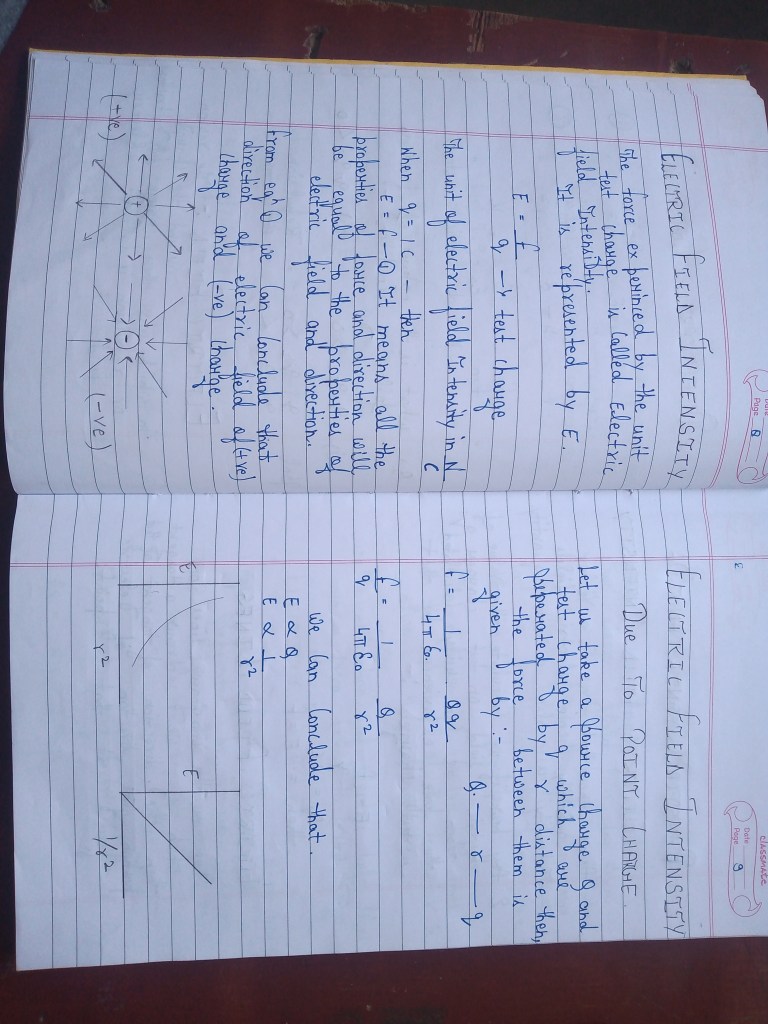 Date
Page 8
ELECTRIC FIELD INTENSITY
The force experinced by the unit
test charge is called Electric
field Intensity.
It is represented by E.
E = f
q → test charge
The unit of electric field Intensity in N
C
When q = 1C — then
E = f —① It means all the
properties of force and direction will
be equall to the properties of
electric field and direction.
from eqn ① we can conclude that
direction of electric field of (+ve)
charge and (-ve) charge.
(+ve) + - (-ve)
classmate
Date
Page 9
ELECTRIC FIELD INTENSITY
DUE TO POINT CHARGE.
Let us take a source charge Q and
test charge q which are
seperated by r distance then,
the force between them is
given by :-
Q. — r — q
f = 1 . Qq
4πε₀ r²
f = 1 Q
q 4πε₀ r²
We can conclude that.
E ∝ Q
E ∝ 1
r²
E
r²
E
1/r²